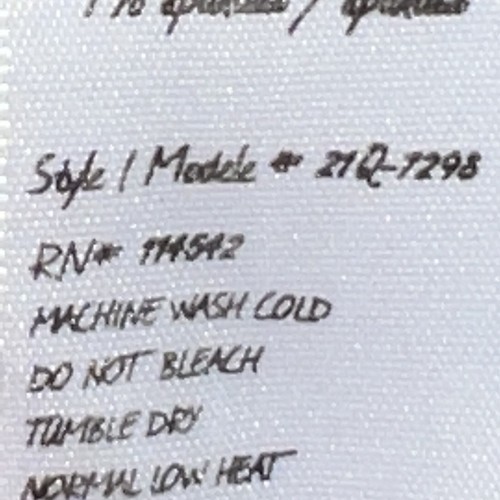 1% spandex / spandex
Style / Modele # 21Q-7298
RN# 114542
MACHINE WASH COLD
DO NOT BLEACH
TUMBLE DRY
NORMAL LOW HEAT